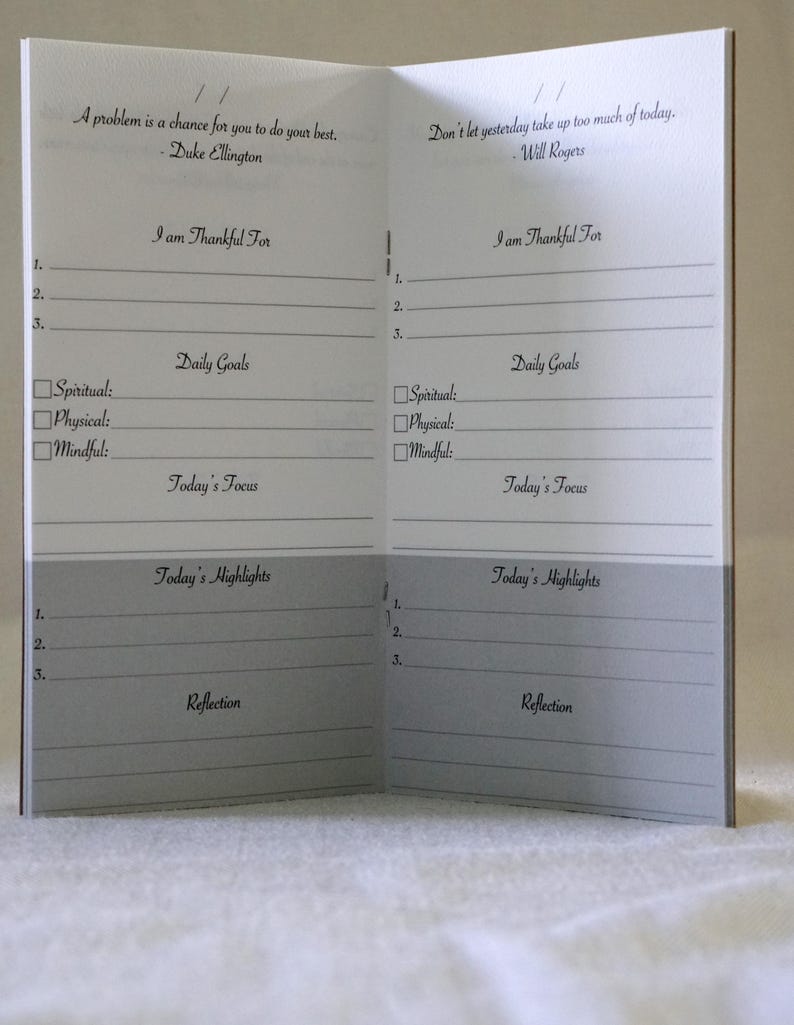 / /
A problem is a chance for you to do your best.
- Duke Ellington
I am Thankful For
1.
2.
3.
Daily Goals
Spiritual:
Physical:
Mindful:
Today's Focus
Today's Highlights
1.
2.
3.
Reflection
/ /
Don't let yesterday take up too much of today.
- Will Rogers
I am Thankful For
1.
2.
3.
Daily Goals
Spiritual:
Physical:
Mindful:
Today's Focus
Today's Highlights
1.
2.
3.
Reflection